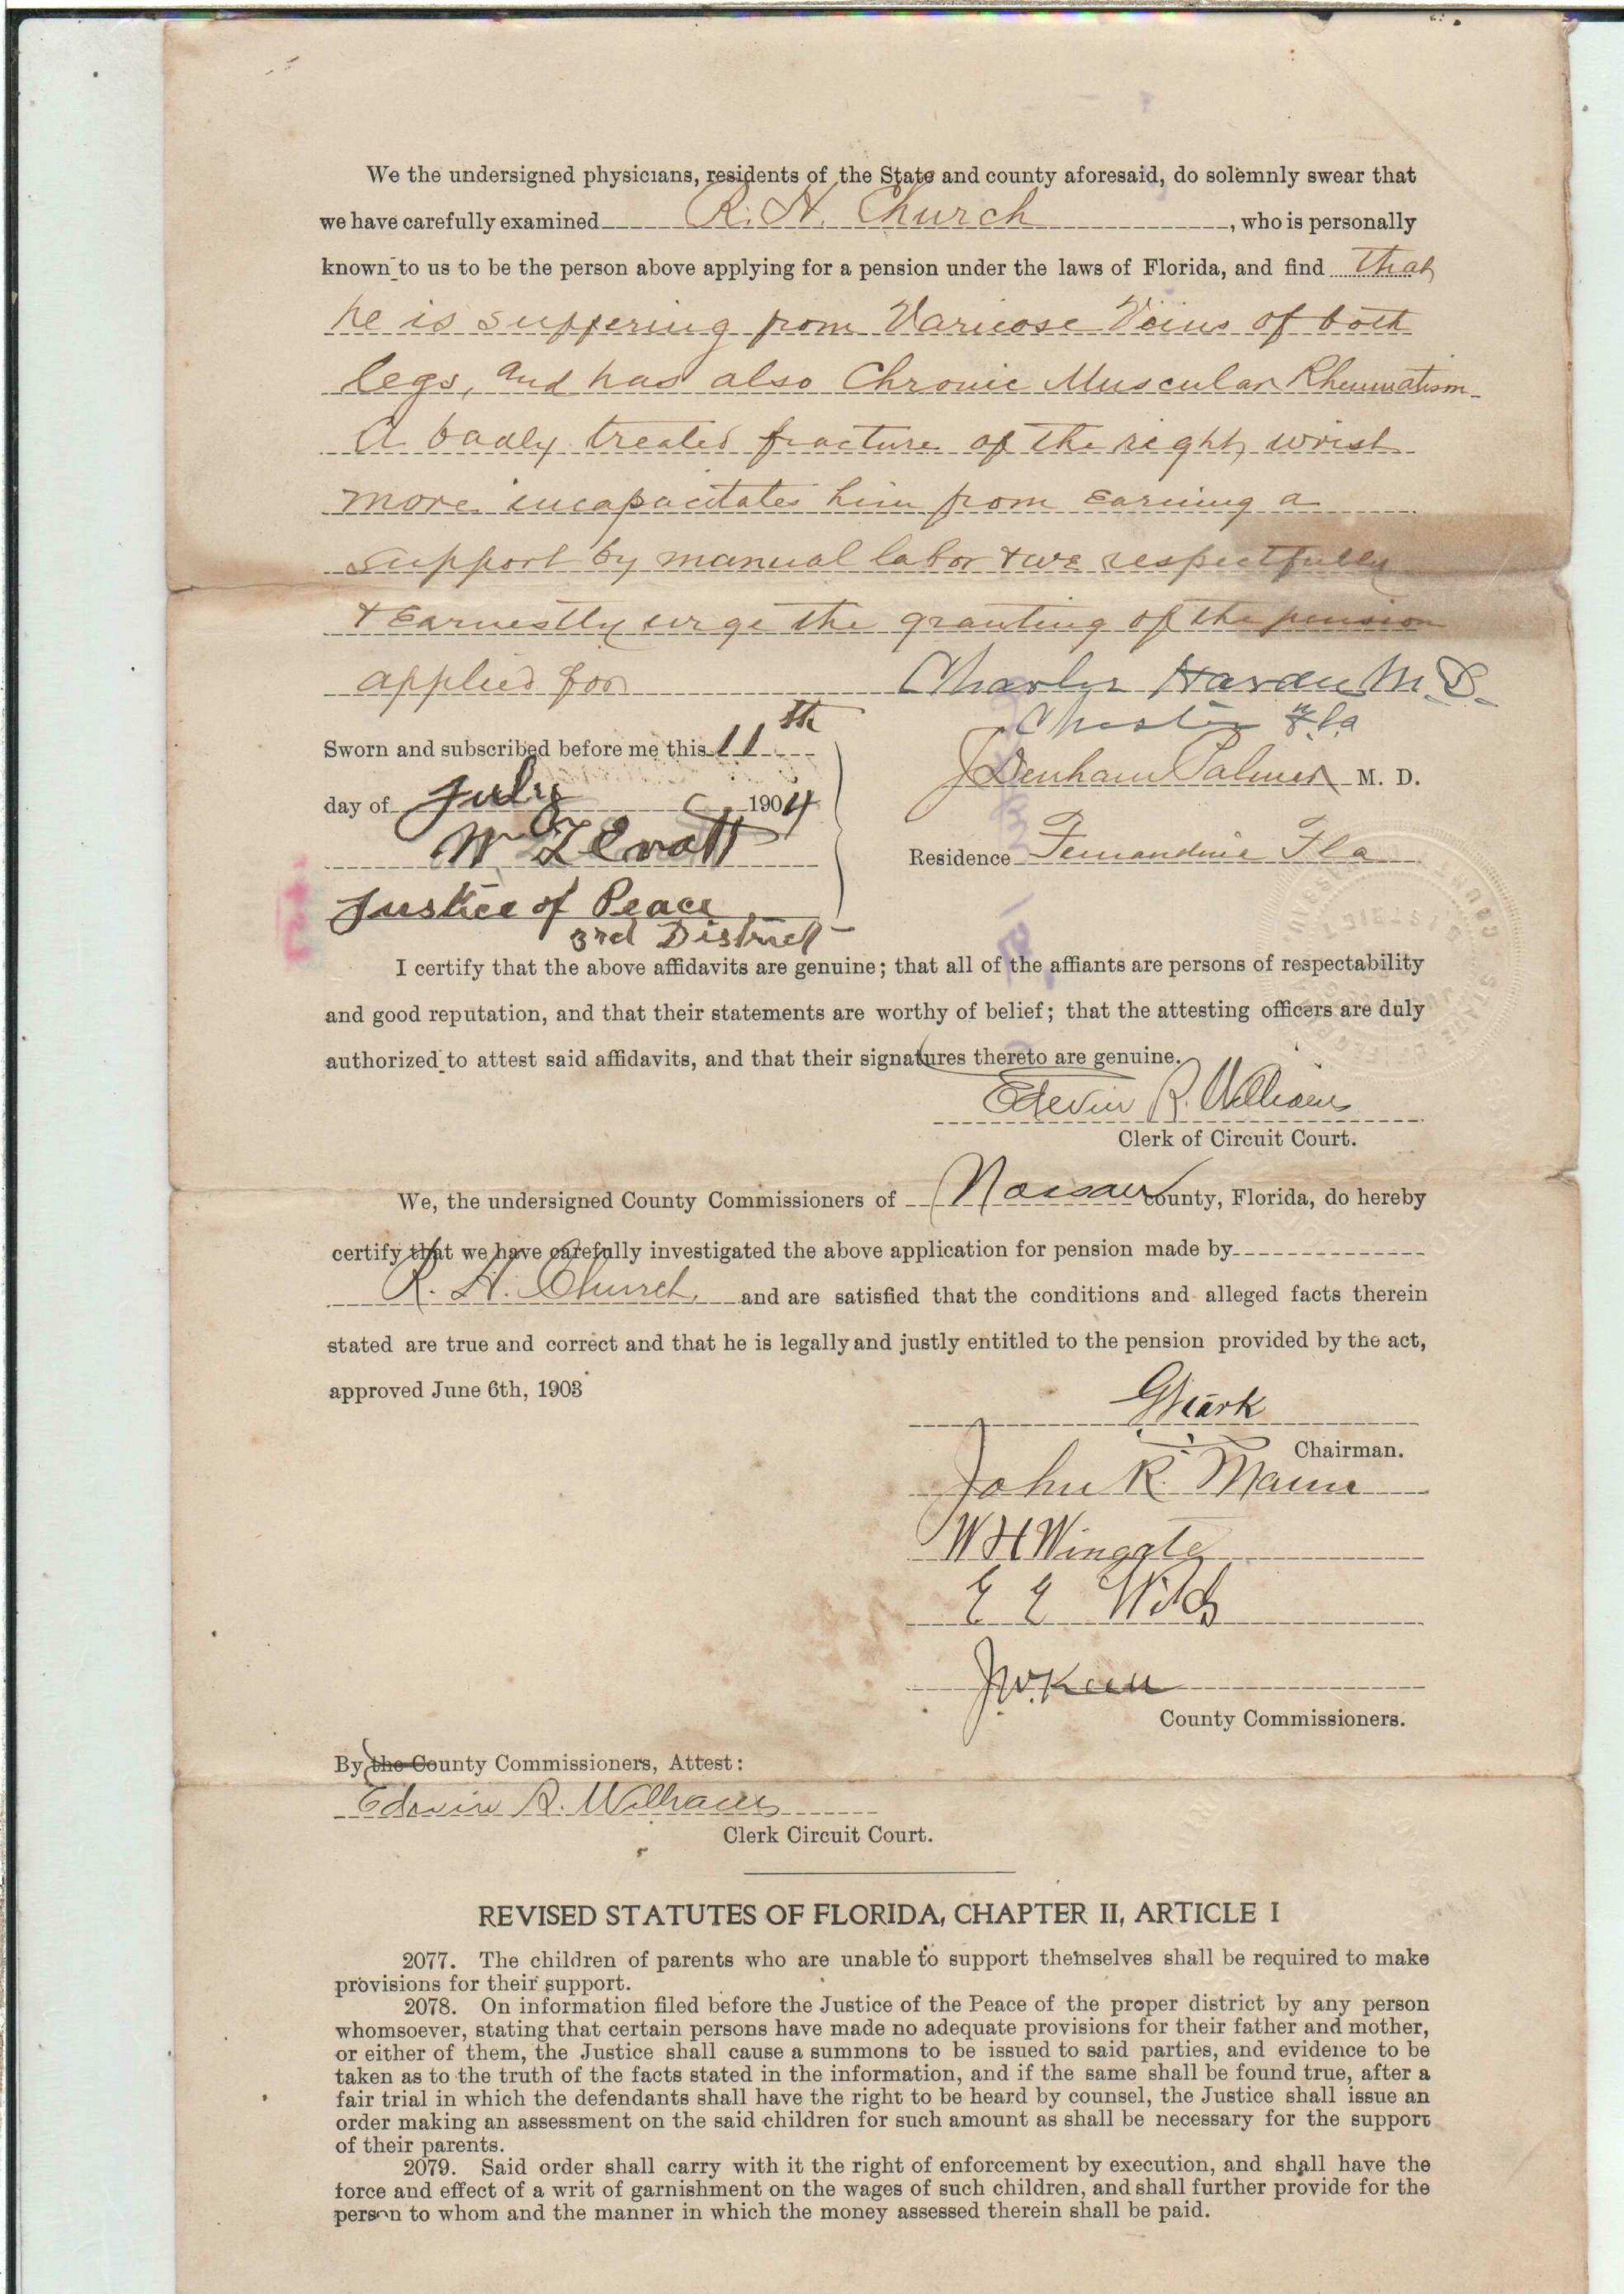 We the undersigned physicians, residents of the State and county aforesaid, do solemnly swear that
we have carefully examined R. H. Church, who is personally
known to us to be the person above applying for a pension under the laws of Florida, and find that
he is suffering from Varicose Veins of both
legs, and has also Chronic Muscular Rheumatism
A badly treated fracture of the right wrist
more incapacitates him from earning a
support by manual labor & we respectfully
& earnestly urge the granting of the pension
applied for
Charles M. D.
Chester Fla
Sworn and subscribed before me this 11th
J Denham Palmer M. D.
day of July 1904
Residence Fernandina Fla
Justice of Peace
3rd District
I certify that the above affidavits are genuine; that all of the affiants are persons of respectability
and good reputation, and that their statements are worthy of belief; that the attesting officers are duly
authorized to attest said affidavits, and that their signatures thereto are genuine.
Edwin R. Williams
Clerk of Circuit Court.
We, the undersigned County Commissioners of Nassau County, Florida, do hereby
certify that we have carefully investigated the above application for pension made by
R. H. Church, and are satisfied that the conditions and alleged facts therein
stated are true and correct and that he is legally and justly entitled to the pension provided by the act,
approved June 6th, 1903
Chairman.
John R. Mann
W H Wingate
E E Wilds
J. W. Keen
County Commissioners.
By the County Commissioners, Attest:
Edwin R. Williams
Clerk Circuit Court.
REVISED STATUTES OF FLORIDA, CHAPTER II, ARTICLE I
2077. The children of parents who are unable to support themselves shall be required to make
provisions for their support.
2078. On information filed before the Justice of the Peace of the proper district by any person
whomsoever, stating that certain persons have made no adequate provisions for their father and mother,
or either of them, the Justice shall cause a summons to be issued to said parties, and evidence to be
taken as to the truth of the facts stated in the information, and if the same shall be found true, after a
fair trial in which the defendants shall have the right to be heard by counsel, the Justice shall issue an
order making an assessment on the said children for such amount as shall be necessary for the support
of their parents.
2079. Said order shall carry with it the right of enforcement by execution, and shall have the
force and effect of a writ of garnishment on the wages of such children, and shall further provide for the
person to whom and the manner in which the money assessed therein shall be paid.